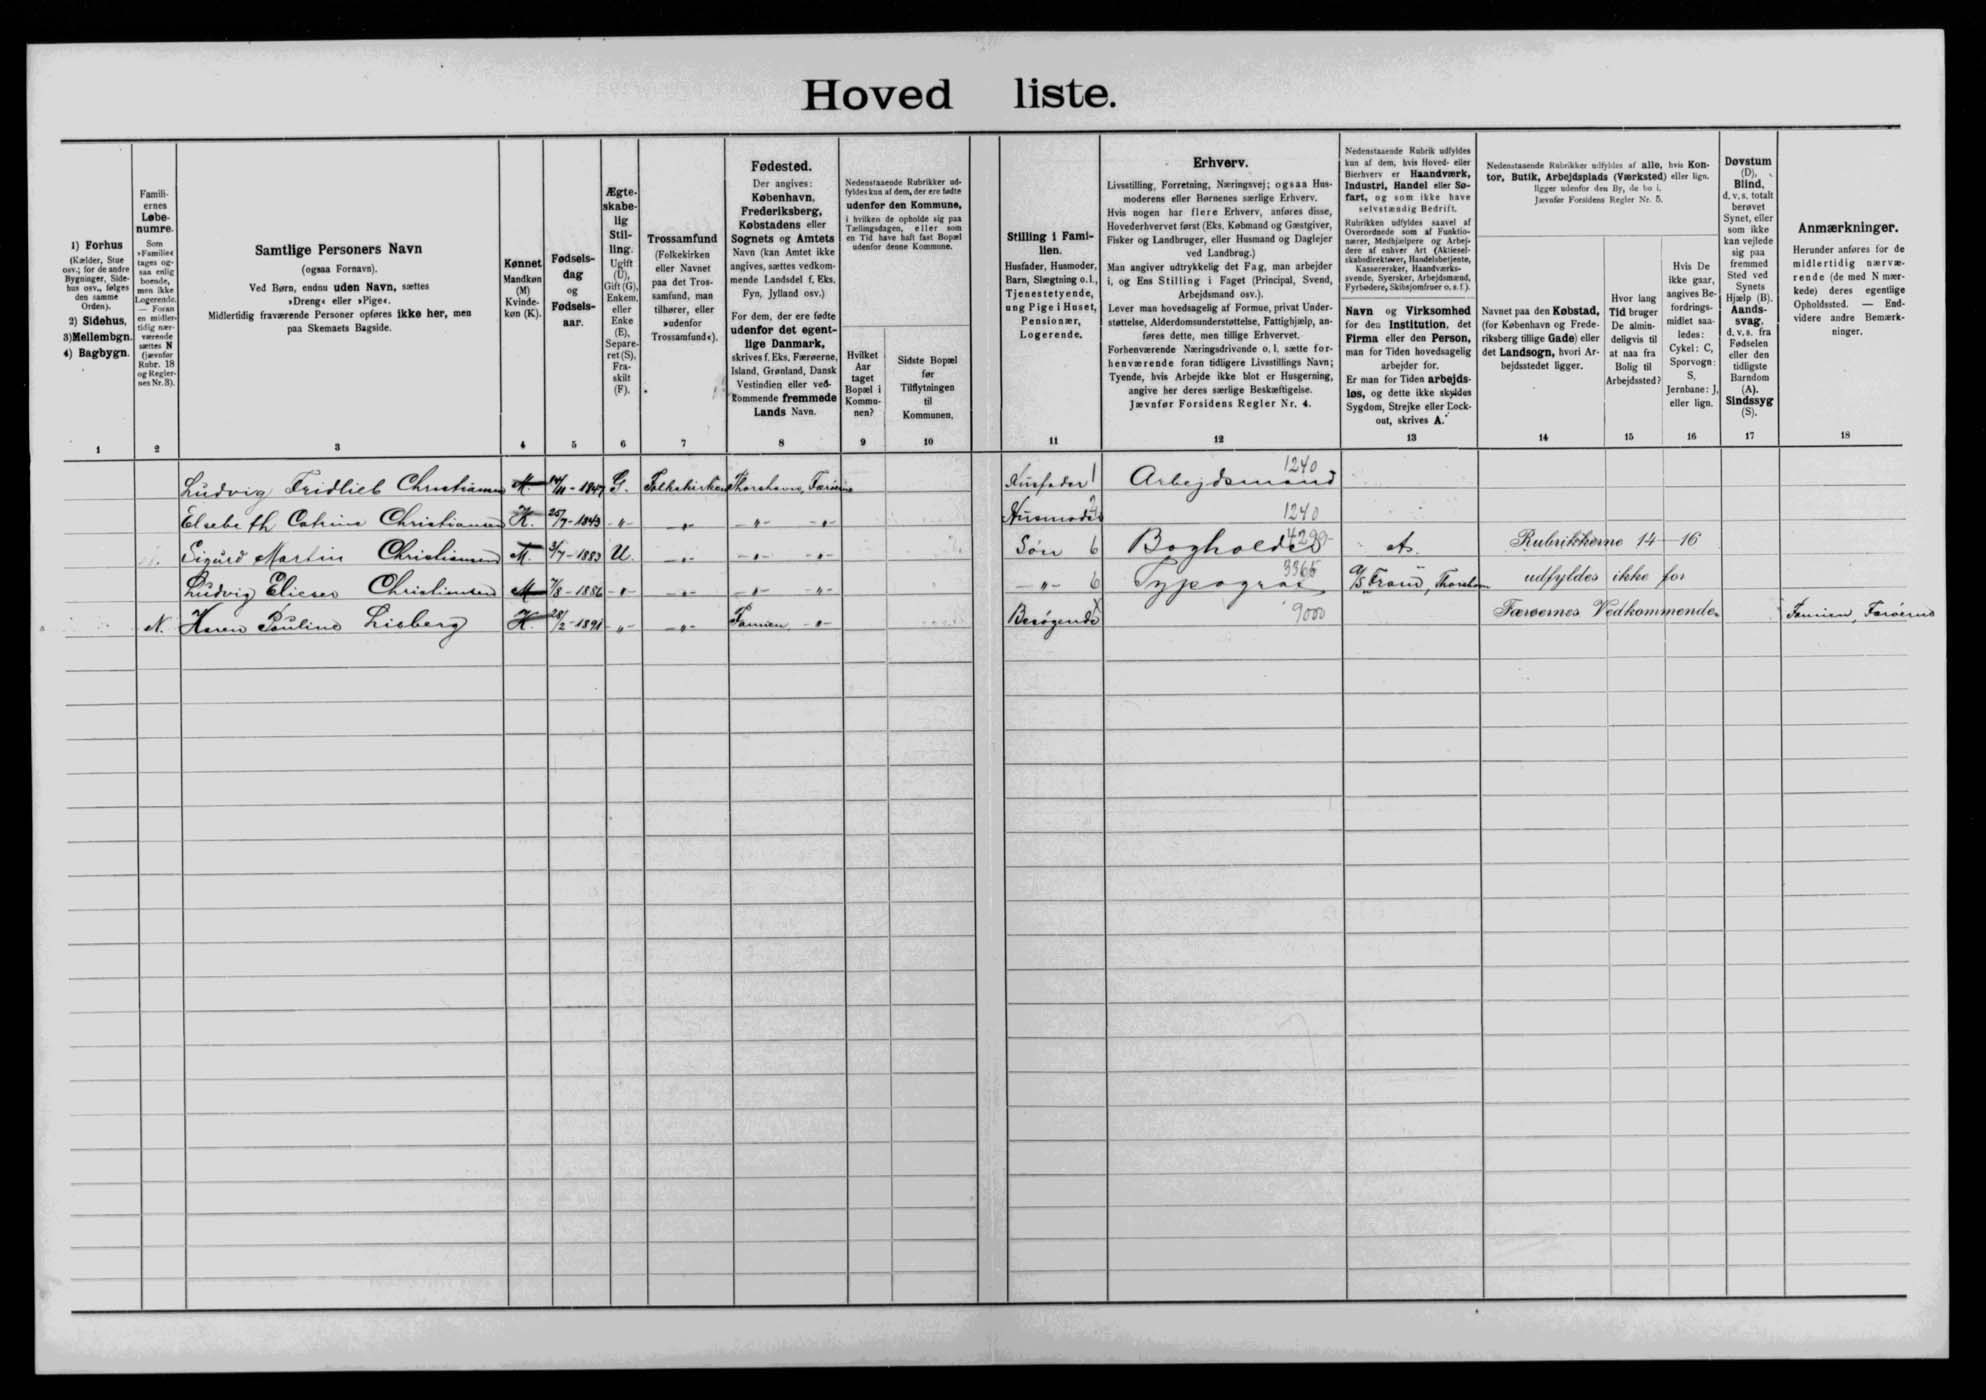 Hoved liste.
1) Forhus
(Kælder, Stue
osv.; for de andre
Bygninger, Side-
hus osv., følges
den samme
Orden).
2) Sidehus,
3) Mellembgn.
4) Bagbygn.
1
Famili-
ernes
Løbe-
numre.
Som
»Familie«
tages og-
saa enlig
boende,
men ikke
Logerende.
— Foran
en midler-
tidig nær-
værende
sættes N
(jævnfør
Rubr. 18
og Regler-
nes Nr. 3).
2
Samtlige Personers Navn
(ogsaa Fornavn).
Ved Børn, endnu uden Navn, sættes
»Dreng« eller »Pige«.
Midlertidig fraværende Personer opføres ikke her, men
paa Skemaets Bagside.
3
Kønnet
Mandkøn
(M)
Kvinde-
køn (K).
4
Fødsels-
dag
og
Fødsels-
aar.
5
Ægte-
skabe-
lig
Stil-
ling.
Ugift
(U),
Gift (G),
Enkem.
eller
Enke
(E),
Separe-
ret (S),
Fra-
skilt
(F).
6
Trossamfund
(Folkekirken
eller Navnet
paa det Tros-
samfund, man
tilhører, eller
»udenfor
Trossamfund«).
7
Fødested.
Der angives:
København,
Frederiksberg,
Købstadens eller
Sognets og Amtets
Navn (kan Amtet ikke
angives, sættes vedkom-
mende Landsdel f. Eks.
Fyn, Jylland osv.)
For dem, der ere fødte
udenfor det egent-
lige Danmark,
skrives f. Eks. Færøerne,
Island, Grønland, Dansk
Vestindien eller ved-
kommende fremmede
Lands Navn.
8
Nedenstaaende Rubrikker ud-
fyldes kun af dem, der ere fødte
udenfor den Kommune,
i hvilken de opholde sig paa
Tællingsdagen, eller som
en Tid have haft fast Bopæl
udenfor denne Kommune.
Hvilket
Aar
taget
Bopæl i
Kommu-
nen?
9
Sidste Bopæl
før
Tilflytningen
til
Kommunen.
10
Stilling i Fami-
lien.
Husfader, Husmoder,
Barn, Slægtning o. l.,
Tjenestetyende,
ung Pige i Huset,
Pensionær,
Logerende.
11
Erhverv.
Livsstilling, Forretning, Næringsvej; ogsaa Hus-
moderens eller Børnenes særlige Erhverv.
Hvis nogen har flere Erhverv, anføres disse,
Hovederhvervet først (Eks. Købmand og Gæstgiver,
Fisker og Landbruger, eller Husmand og Daglejer
ved Landbrug.)
Man angiver udtrykkelig det Fag, man arbejder
i, og Ens Stilling i Faget (Principal, Svend,
Arbejdsmand osv.).
Lever man hovedsagelig af Formue, privat Under-
støttelse, Alderdomsunderstøttelse, Fattighjælp, an-
føres dette, men tillige Erhvervet.
Forhenværende Næringsdrivende o. l. sætte for-
henværende foran tidligere Livsstillings Navn;
Tyende, hvis Arbejde ikke blot er Husgerning,
angive her deres særlige Beskæftigelse.
Jævnfør Forsidens Regler Nr. 4.
12
Nedenstaaende Rubrik udfyldes
kun af dem, hvis Hoved- eller
Bierhverv er Haandværk,
Industri, Handel eller Sø-
fart, og som ikke have
selvstændig Bedrift.
Rubrikken udfyldes saavel af
Overordnede som af Funktio-
nærer, Medhjælpere og Arbej-
dere af enhver Art (Aktiesel-
skabsdirektører, Handelsbetjente,
Kasserersker, Haandværks-
svende, Syersker, Arbejdsmænd,
Fyrbødere, Skibsjomfruer o. s. f.).
Navn og Virksomhed
for den Institution, det
Firma eller den Person,
man for Tiden hovedsagelig
arbejder for.
Er man for Tiden arbejds-
løs, og dette ikke skyldes
Sygdom, Strejke eller Lock-
out, skrives A.
13
Nedenstaaende Rubrikker udfyldes af alle, hvis Kon-
tor, Butik, Arbejdsplads (Værksted) eller lign.
ligger udenfor den By, de bo i.
Jævnfør Forsidens Regler Nr. 5.
Navnet paa den Købstad,
(for København og Frede-
riksberg tillige Gade) eller
det Landsogn, hvori Ar-
bejdsstedet ligger.
14
Hvor lang
Tid bruger
De almin-
deligvis til
at naa fra
Bolig til
Arbejdssted?
15
Hvis De
ikke gaar,
angives Be-
fordrings-
midlet saa-
ledes:
Cykel: C,
Sporvogn:
S,
Jernbane: J,
eller lign.
16
Døvstum
(D),
Blind,
d. v. s. totalt
berøvet
Synet, eller
som ikke
kan vejlede
sig paa
fremmed
Sted ved
Synets
Hjælp (B).
Aands-
svag.
d. v. s. fra
Fødselen
eller den
tidligste
Barndom
(A).
Sindssyg
(S).
17
Anmærkninger.
Herunder anføres for de
midlertidig nærvæ-
rende (de med N mær-
kede) deres egentlige
Opholdssted. — End-
videre andre Bemærk-
ninger.
18
Ludvig Fridlieb Christiansen M. 14/11-1847 G. Folkekirken Thorshavn, Færøerne Husfader 1 Arbejdsmand 1240
Elsebeth Catrine Christiansen K. 25/7-1843 -"- -"- -"- -"- Husmoder 2 1240
Sigurd Martin Christiansen M. 3/7-1883 U. -"- -"- -"- Søn 6 Bogholder A. Rubrikkerne 14-16
Ludvig Elieser Christiansen M 7/8-1886 -"- -"- -"- -"- -"- 6 Typograf 3365 A/S Fram, Thorshavn udfyldes ikke for
N. Karen Pauline Lisberg K. 28/2-1891 -"- -"- Famien -"- Besøgende 9000 Færøernes Vedkommende. Famien, Færøerne